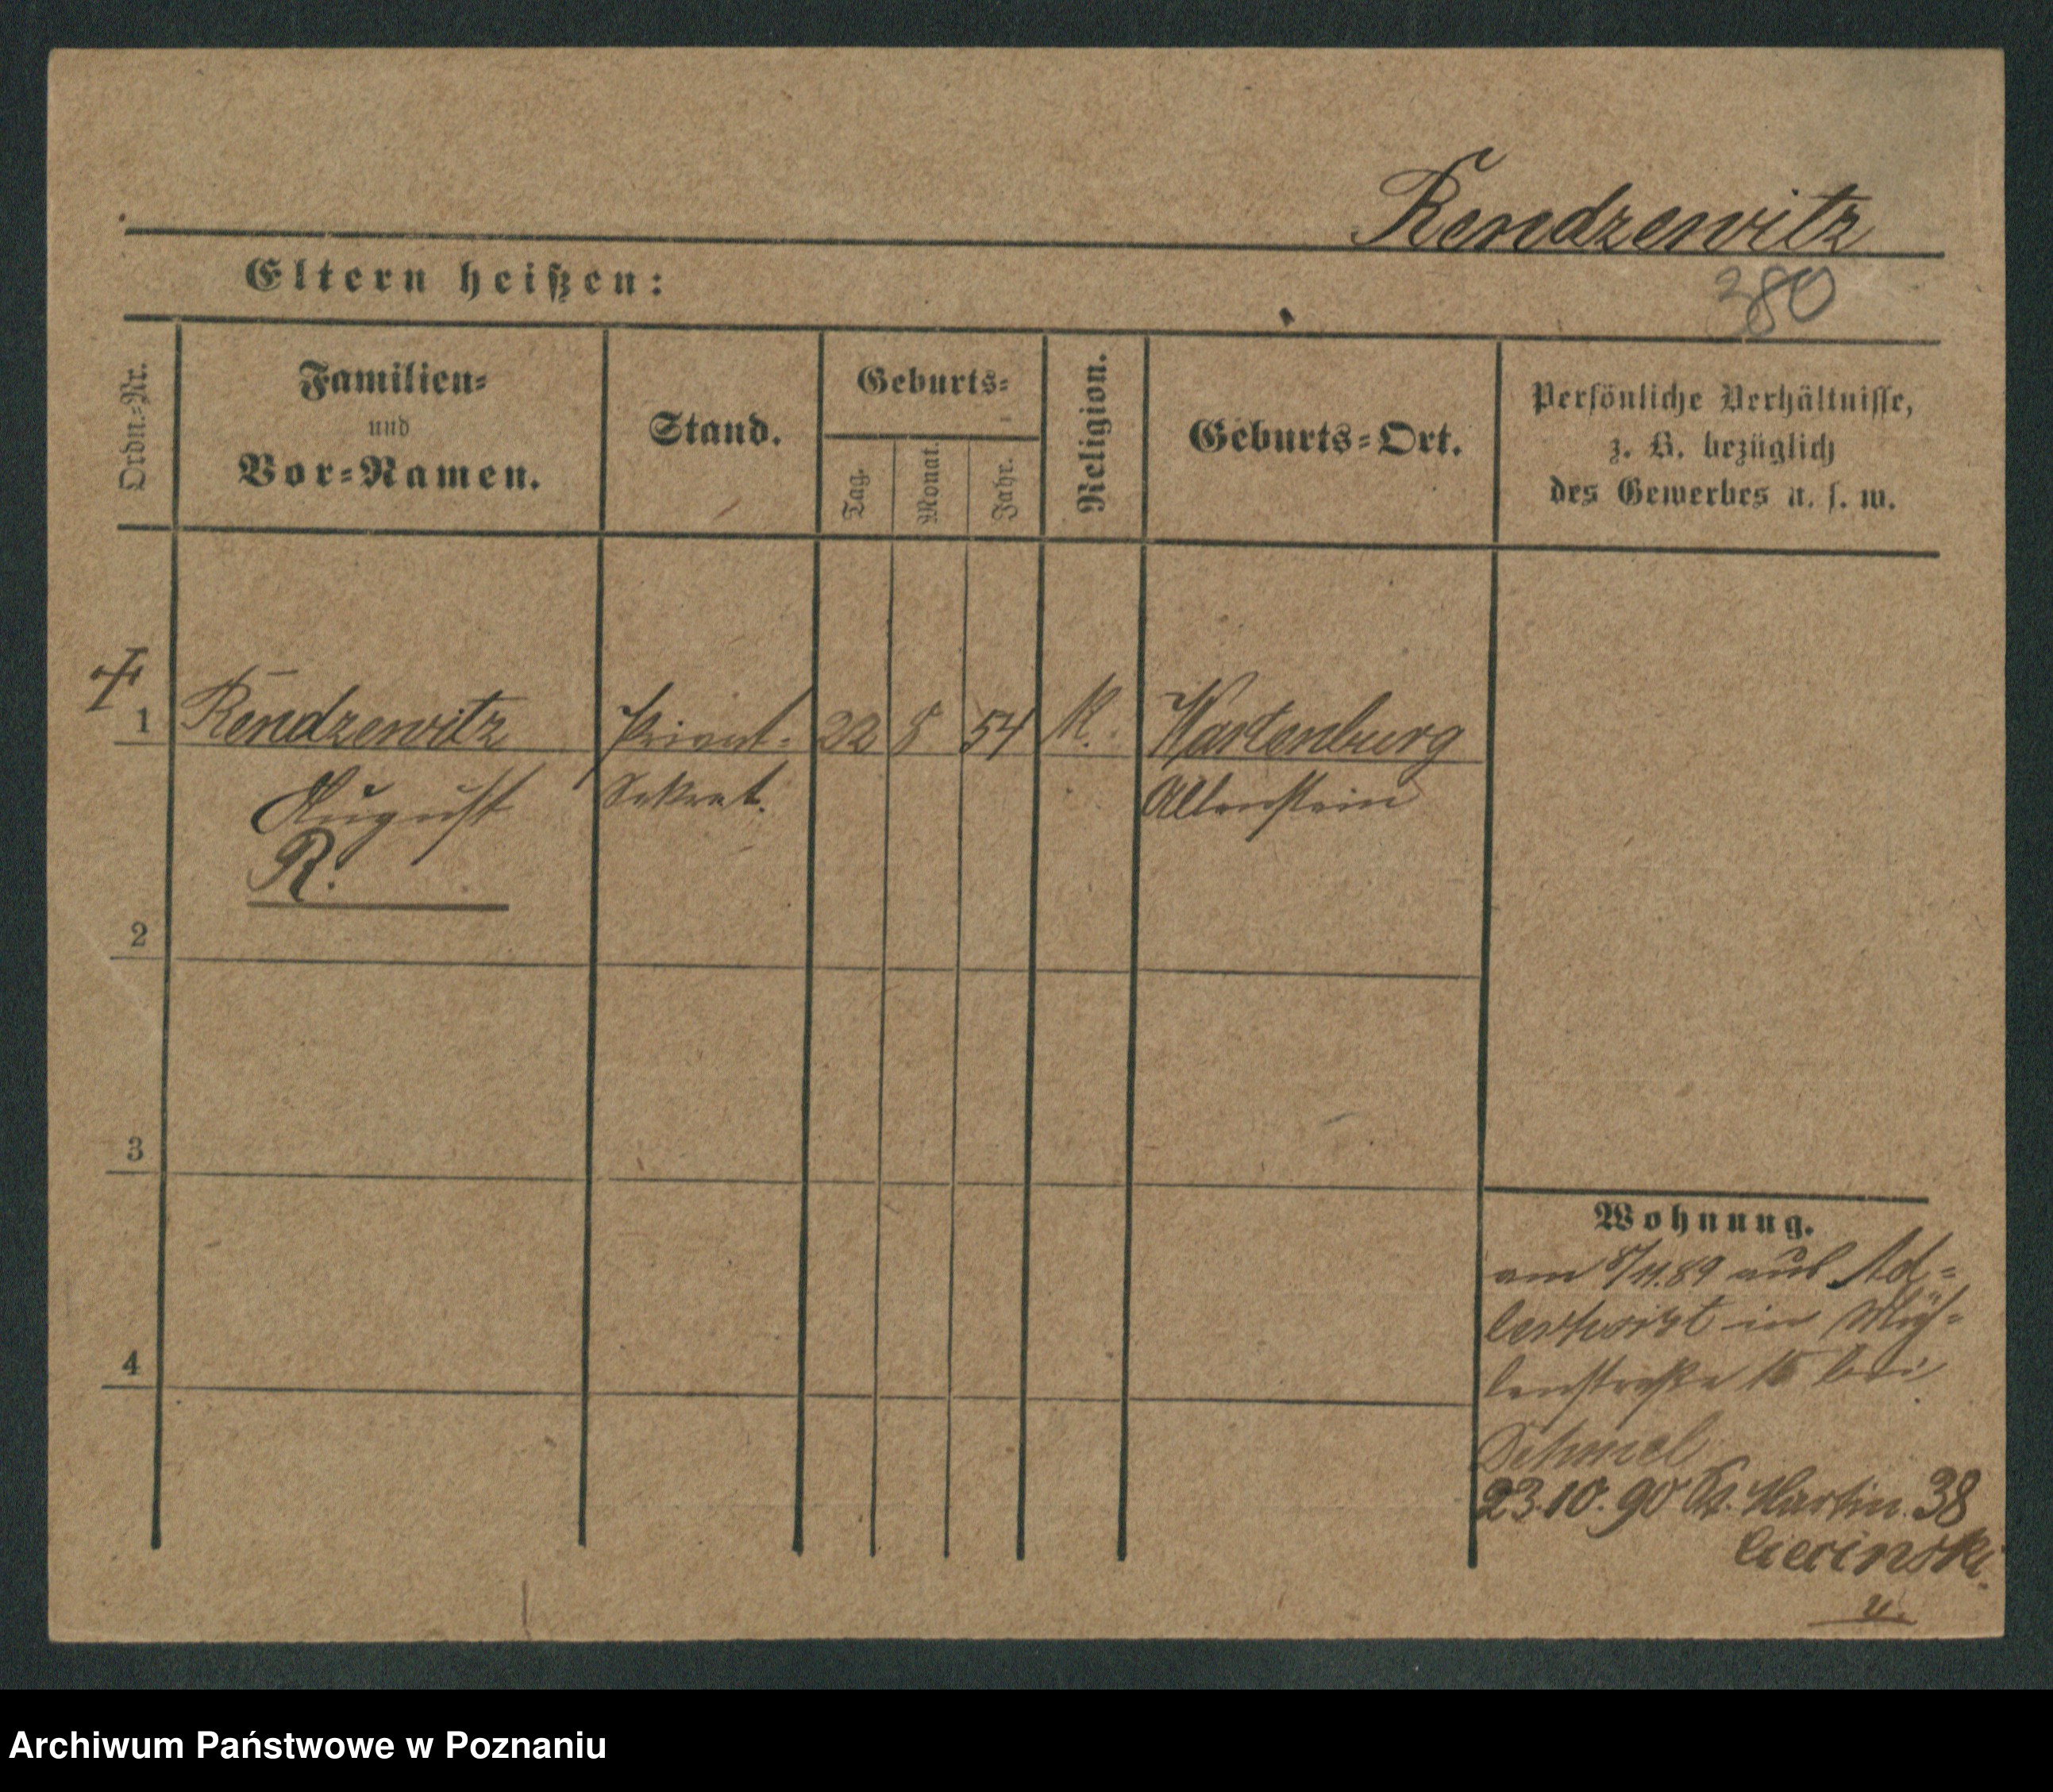 Rendzewitz
380
Eltern heißen:
Ordn.-Nr.
Familien-
und
Vor-Namen.
Stand.
Geburts-
Tag.
Monat.
Jahr.
Religion.
Geburts-Ort.
Persönliche Verhältnisse,
z. B. bezüglich
des Gewerbes u. s. w.
1 Rendzewitz Privat- 22 8 54 K. Wartenburg
August Sekret. Allenstein
R.
2
3
4
Wohnung.
am 8/11.89 aus
in Müh-
lenstraße 15 bei
Schmel
23.10.90 St. Martin. 38
u.
Archiwum Państwowe w Poznaniu